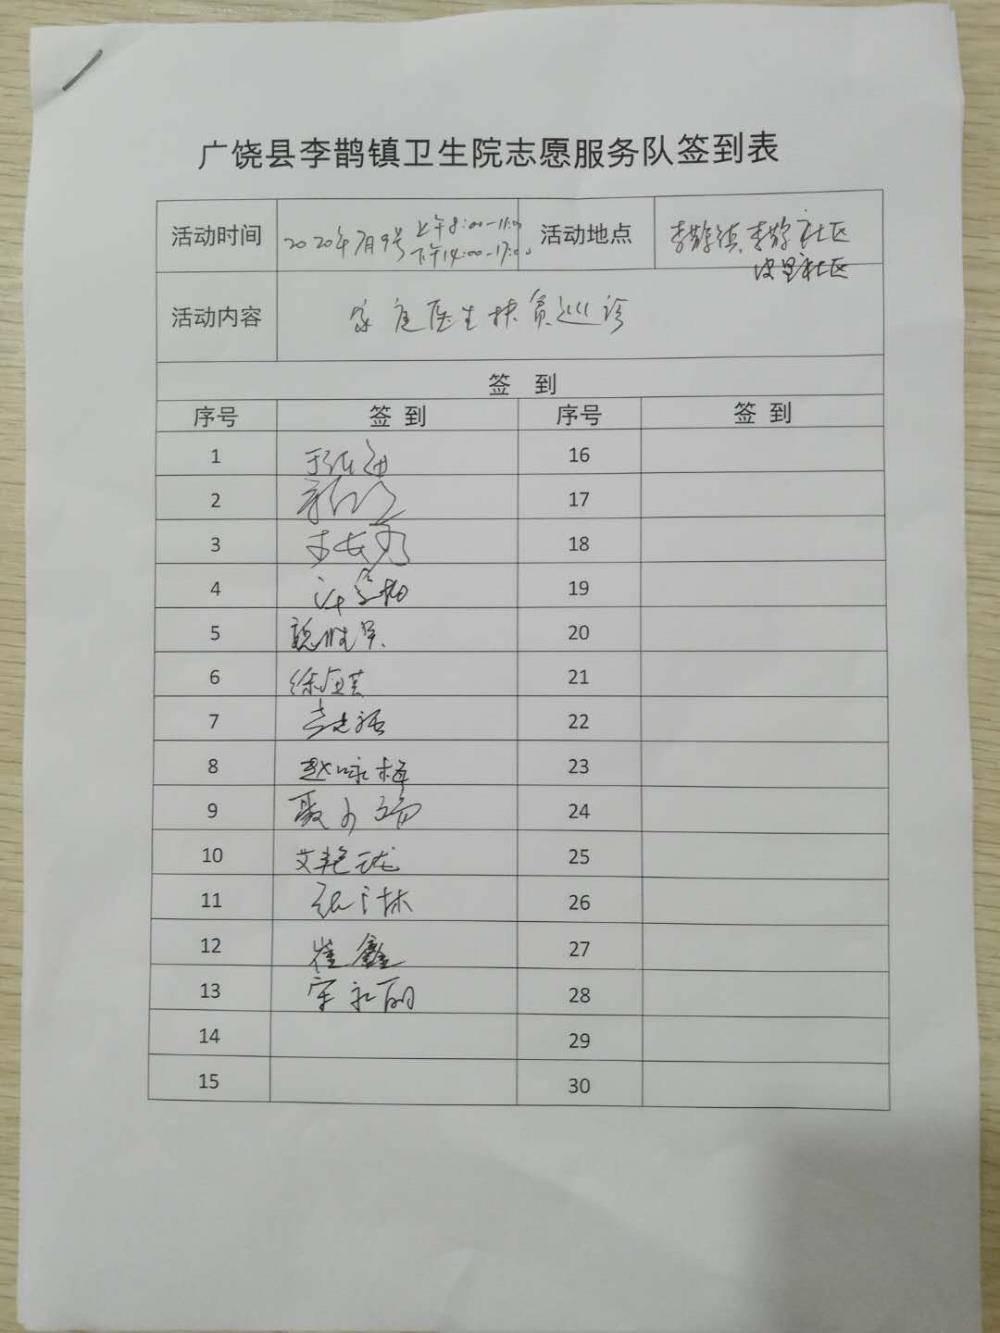 广饶县李鹊镇卫生院志愿服务队签到表
活动时间 2020年7月9号 上午8:00-11:00 下午14:00-17:00 活动地点 李鹊镇李鹊社区
社区
活动内容 家庭医生扶贫巡诊
签 到
序号 签 到 序号 签 到
1 16
2 17
3 18
4 19
5 20
6 21
7 22
8 赵咏梅 23
9 24
10 艾艳珑 25
11 26
12 崔鑫 27
13 宋永丽 28
14 29
15 30